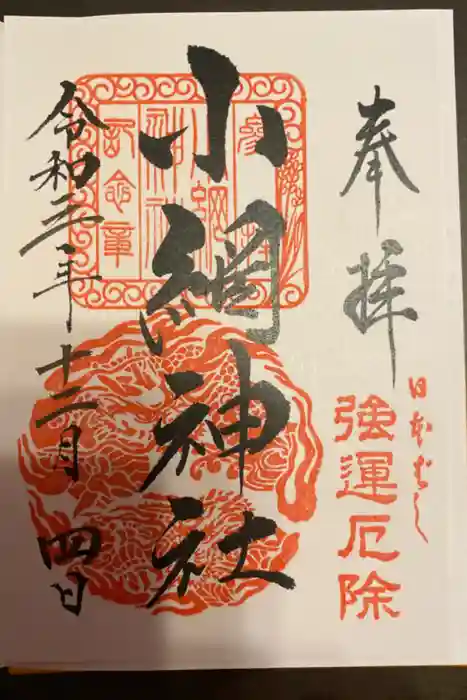 奉拝
日本ばし
強運厄除
小網神社
小網
神社
記念章
令和三年十二月四日